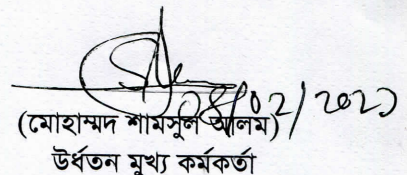 08/02/202১
(মোহাম্মদ শামসুল আলম)
উর্ধতন মুখ্য কর্মকর্তা